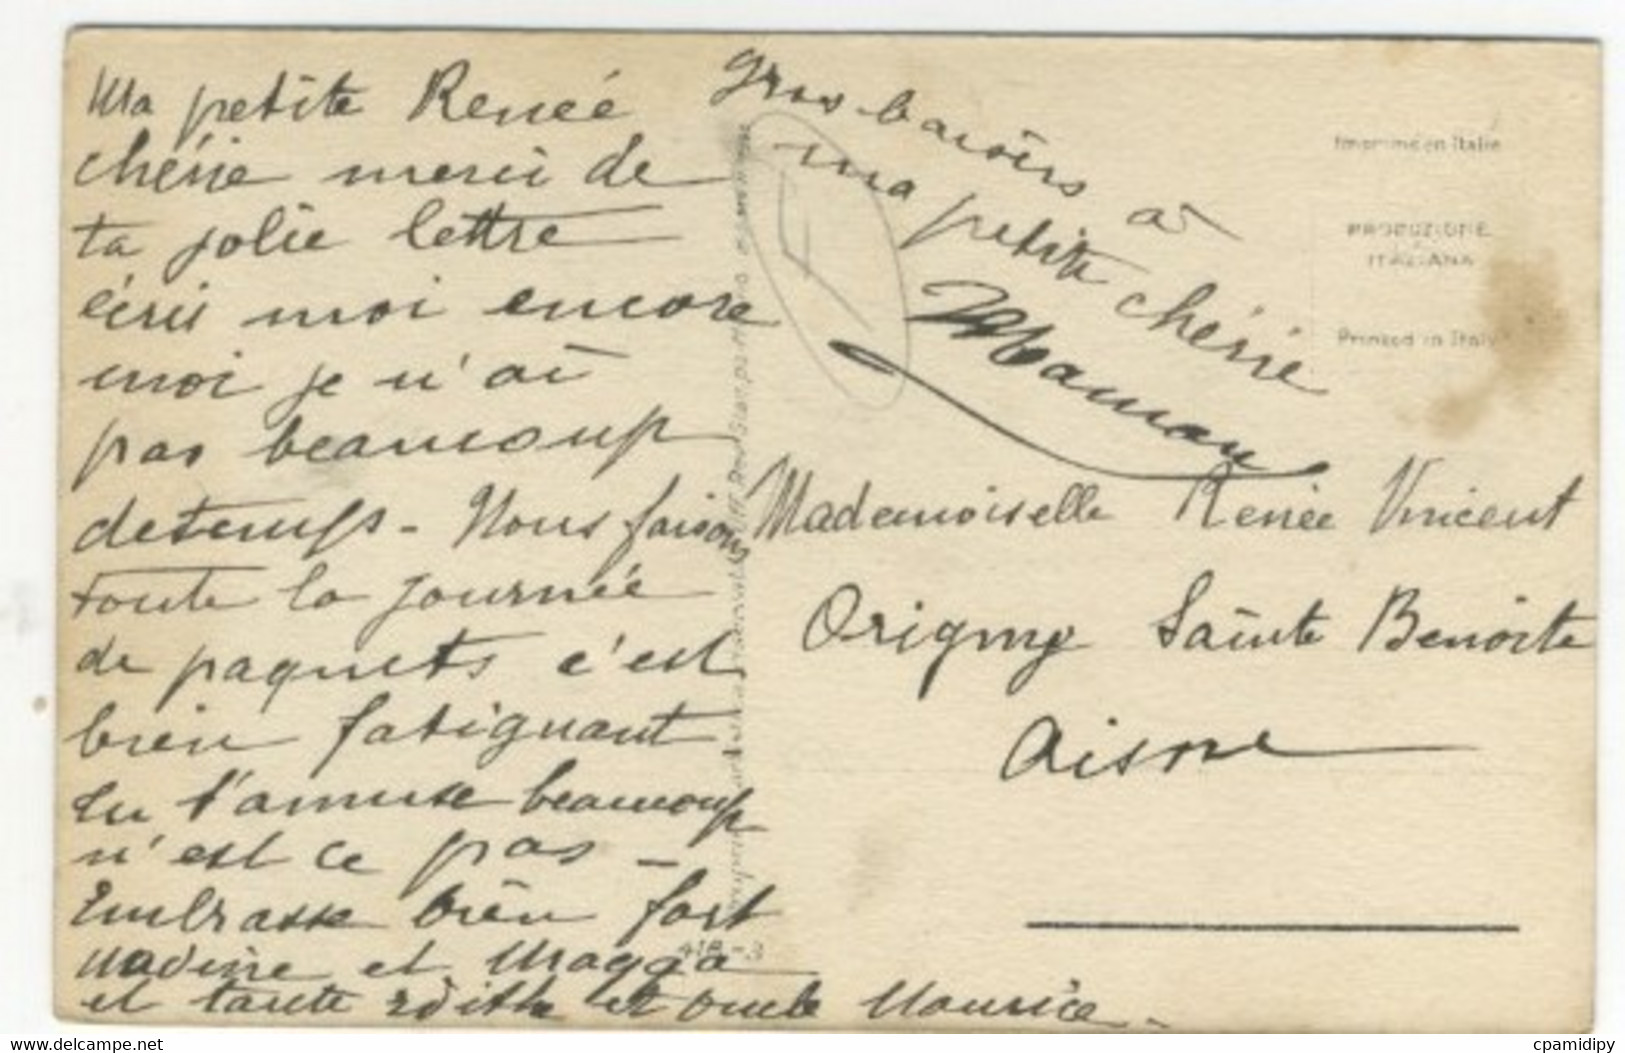 Ma petite Renée
chérie merci de
ta jolie lettre
écris moi encore
moi je n'ai
pas beaucoup
de temps - Nous faisons
toute la journée
de paquets c'est
bien fatigant
tu t'amuse beaucoup
n'est ce pas -
Embrasse bien fort
Nadine et Magga
et tante Edith et oncle Maurice -
gros baisers à
ma petite chérie
Maman
Imprimé en Italie
PRODUZIONE
ITALIANA
Printed in Italy
Mademoiselle Renée Vincent
Origny Sainte Benoite
Aisne
418-3
www.delcampe.net
cpamidipy